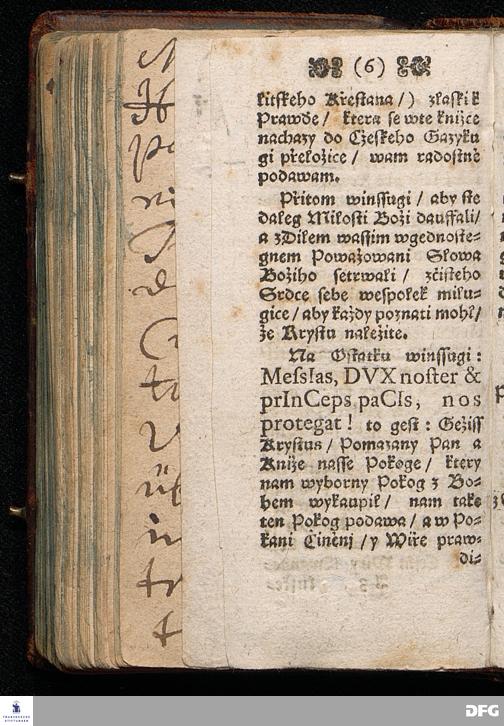 (6)
kitskeho Křestana /) zlaski k
Prawde / ktera se wte knižce
nachazy do Cžeskeho Gazyku
gi přeložice / wam radostně
podawam.
Přitom winssugi / aby ste
daleg Milosti Boži dauffali/
a zDilem wastim wgednoste=
gnem Powažowani Slowa
Božiho setrwali / zčisteho
Srdce sebe wespolek milu=
gice / aby každy poznati mohl/
že Krystu naležite.
Na Ostatku winssugi:
MefsIas, DVX noſter &
prInCeps paCIs, nos
protegat! to gest: Gežiss
Krystus / Pomazany Pan a
Kniže nasse Pokoge / ktery
nam wyborny Pokog z Bo=
hem wykaupil / nam take
ten Pokog podawa / a w Po=
kani Činěnj / y Wire praw=
di=
DFG